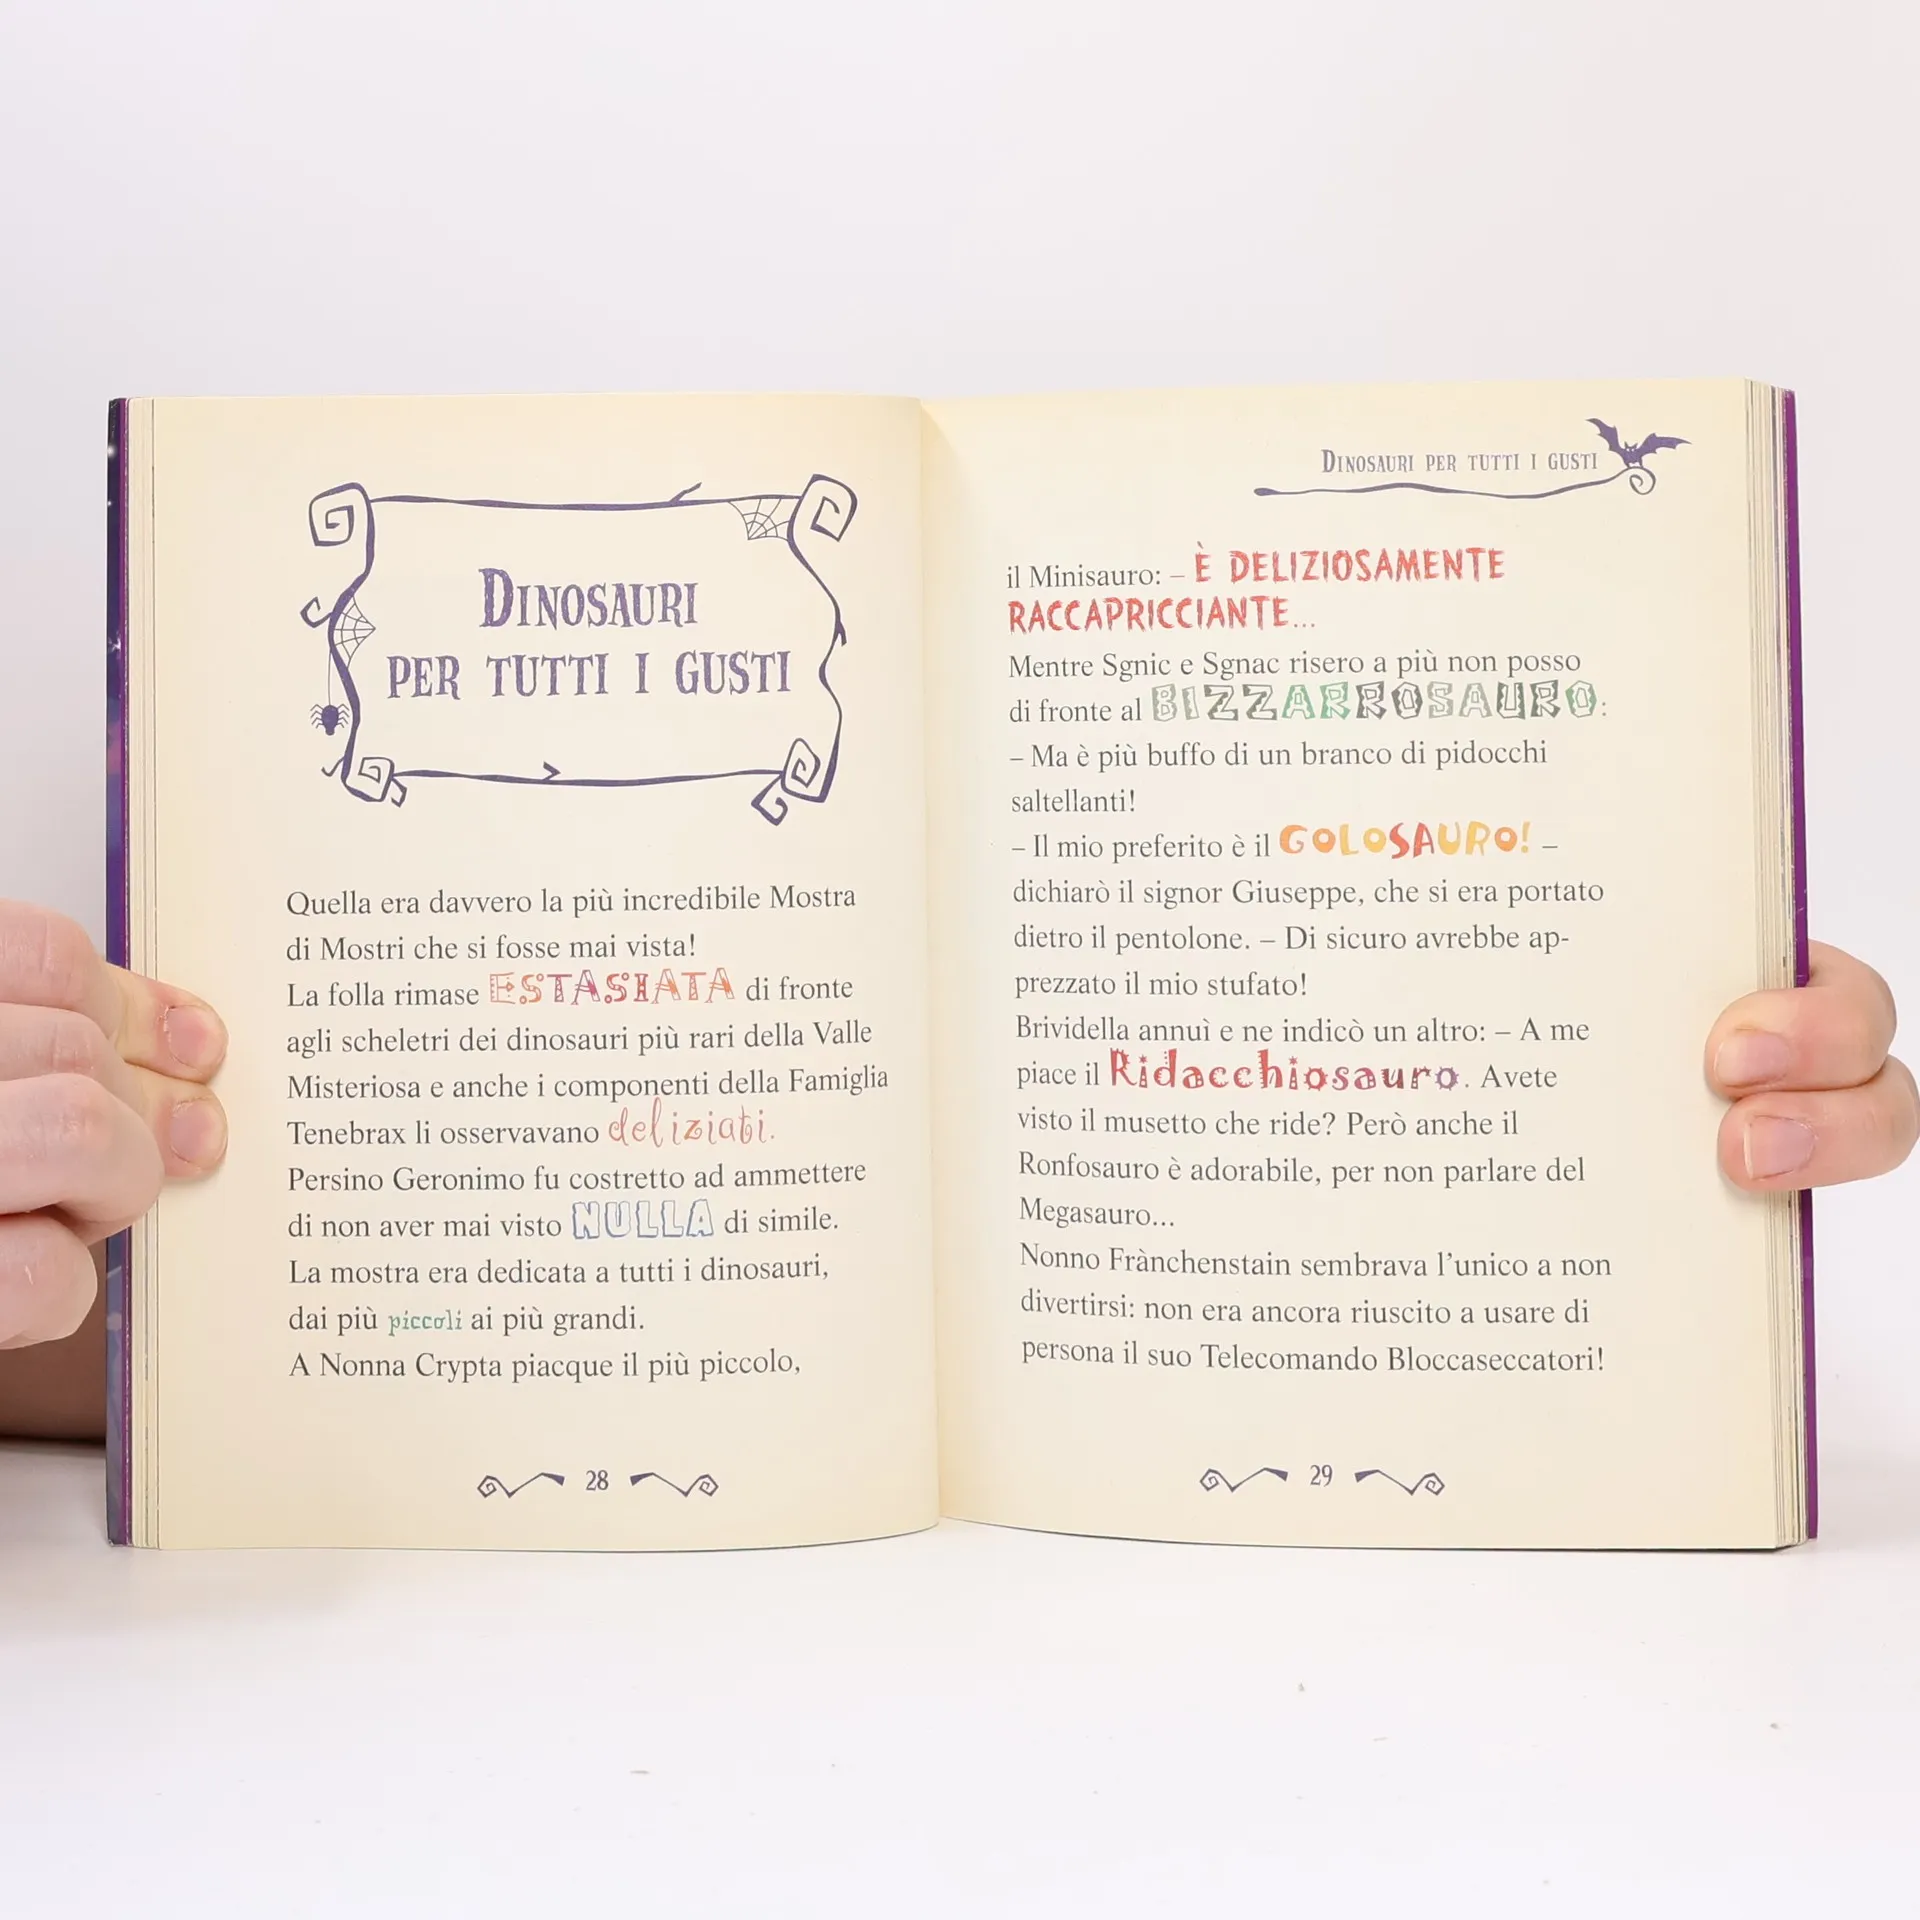 Dinosauri
per tutti i gusti
Quella era davvero la più incredibile Mostra
di Mostri che si fosse mai vista!
La folla rimase ESTASIATA di fronte
agli scheletri dei dinosauri più rari della Valle
Misteriosa e anche i componenti della Famiglia
Tenebrax li osservavano deliziati.
Persino Geronimo fu costretto ad ammettere
di non aver mai visto NULLA di simile.
La mostra era dedicata a tutti i dinosauri,
dai più piccoli ai più grandi.
A Nonna Crypta piacque il più piccolo,
28
Dinosauri per tutti i gusti
il Minisauro: – È DELIZIOSAMENTE
RACCAPRICCIANTE...
Mentre Sgnic e Sgnac risero a più non posso
di fronte al BIZZARROSAURO:
– Ma è più buffo di un branco di pidocchi
saltellanti!
– Il mio preferito è il GOLOSAURO! –
dichiarò il signor Giuseppe, che si era portato
dietro il pentolone. – Di sicuro avrebbe ap-
prezzato il mio stufato!
Brividella annuì e ne indicò un altro: – A me
piace il Ridacchiosauro. Avete
visto il musetto che ride? Però anche il
Ronfosauro è adorabile, per non parlare del
Megasauro...
Nonno Frànchenstain sembrava l'unico a non
divertirsi: non era ancora riuscito a usare di
persona il suo Telecomando Bloccaseccatori!
29